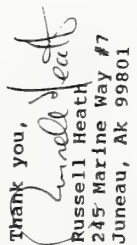 Thank you,
Russell Heath
Russell Heath
245 Marine Way #7
Juneau, Ak 99801